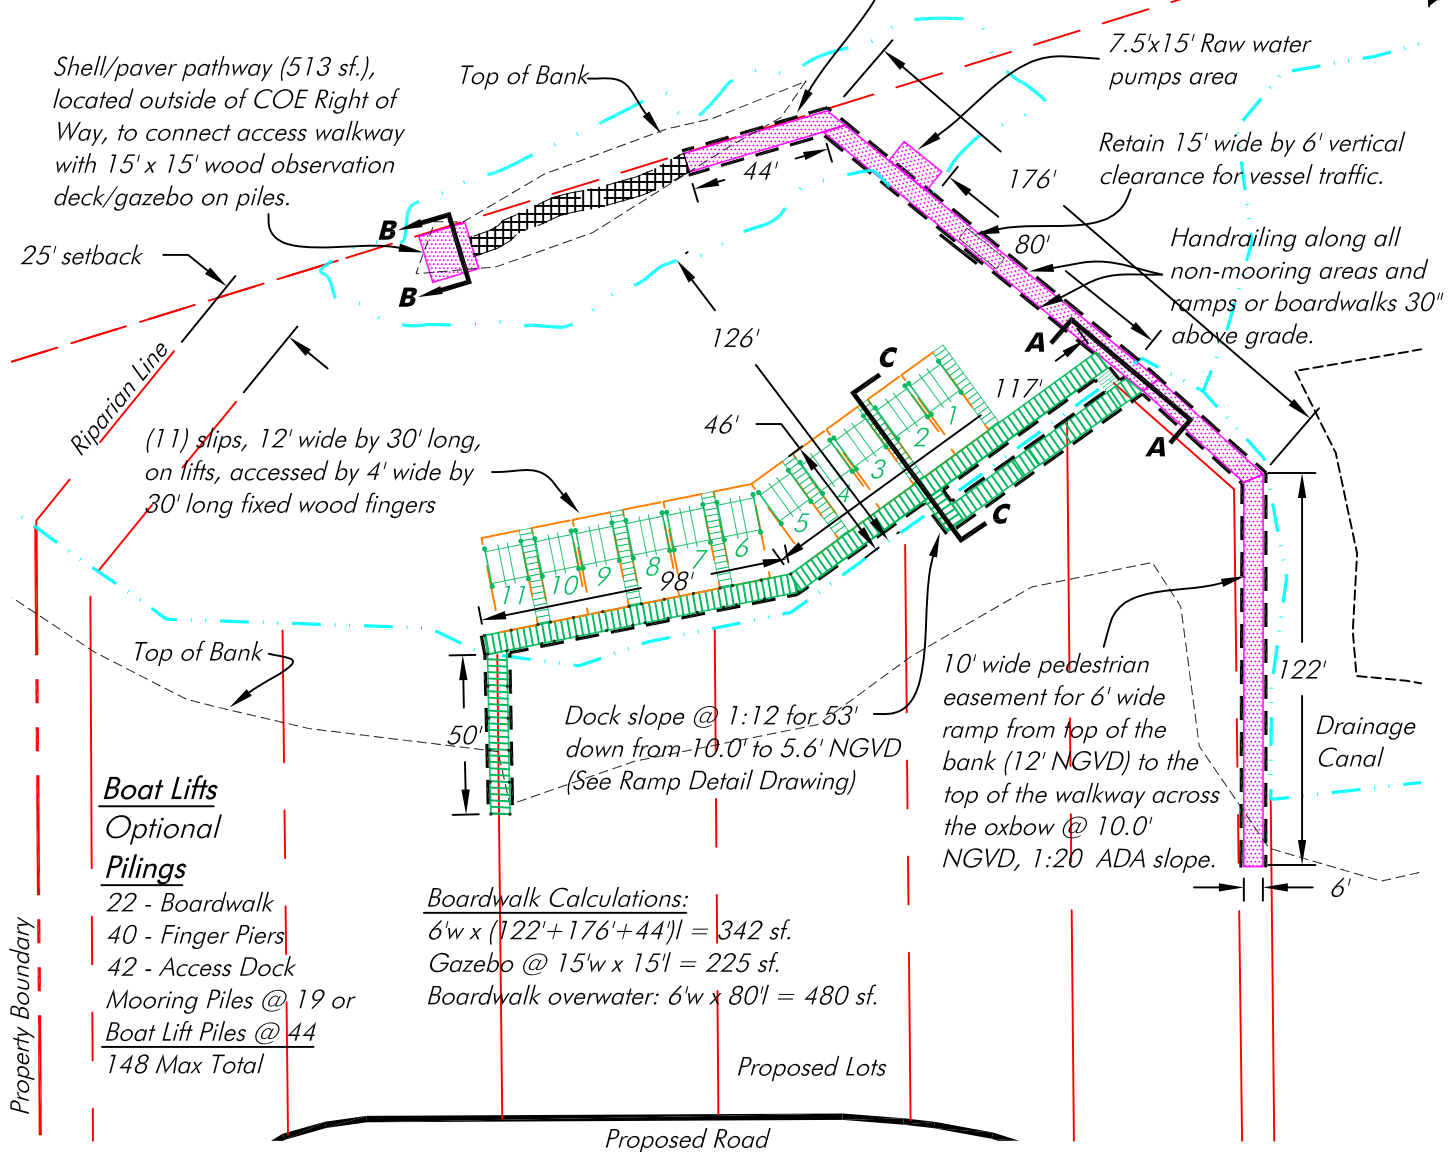 Shell/paver pathway (513 sf.),
located outside of COE Right of
Way, to connect access walkway
with 15' x 15' wood observation
deck/gazebo on piles.
Top of Bank
7.5'x15' Raw water
pumps area
Retain 15' wide by 6' vertical
clearance for vessel traffic.
Handrailing along all
non-mooring areas and
ramps or boardwalks 30"
above grade.
44'
176'
80'
B
B
25' setback
Riparian Line
126'
A
A
C
C
117'
46'
(11) slips, 12' wide by 30' long,
on lifts, accessed by 4' wide by
30' long fixed wood fingers
1
2
3
4
5
6
7
8
9
10
11
98'
Top of Bank
50'
Dock slope @ 1:12 for 53'
down from 10.0' to 5.6' NGVD
(See Ramp Detail Drawing)
10' wide pedestrian
easement for 6' wide
ramp from top of the
bank (12' NGVD) to the
top of the walkway across
the oxbow @ 10.0'
NGVD, 1:20 ADA slope.
122'
Drainage
Canal
6'
Boat Lifts
Optional
Pilings
22 - Boardwalk
40 - Finger Piers
42 - Access Dock
Mooring Piles @ 19 or
Boat Lift Piles @ 44
148 Max Total
Boardwalk Calculations:
6'w x (122'+176'+44')l = 342 sf.
Gazebo @ 15'w x 15'l = 225 sf.
Boardwalk overwater: 6'w x 80'l = 480 sf.
Property Boundary
Proposed Lots
Proposed Road